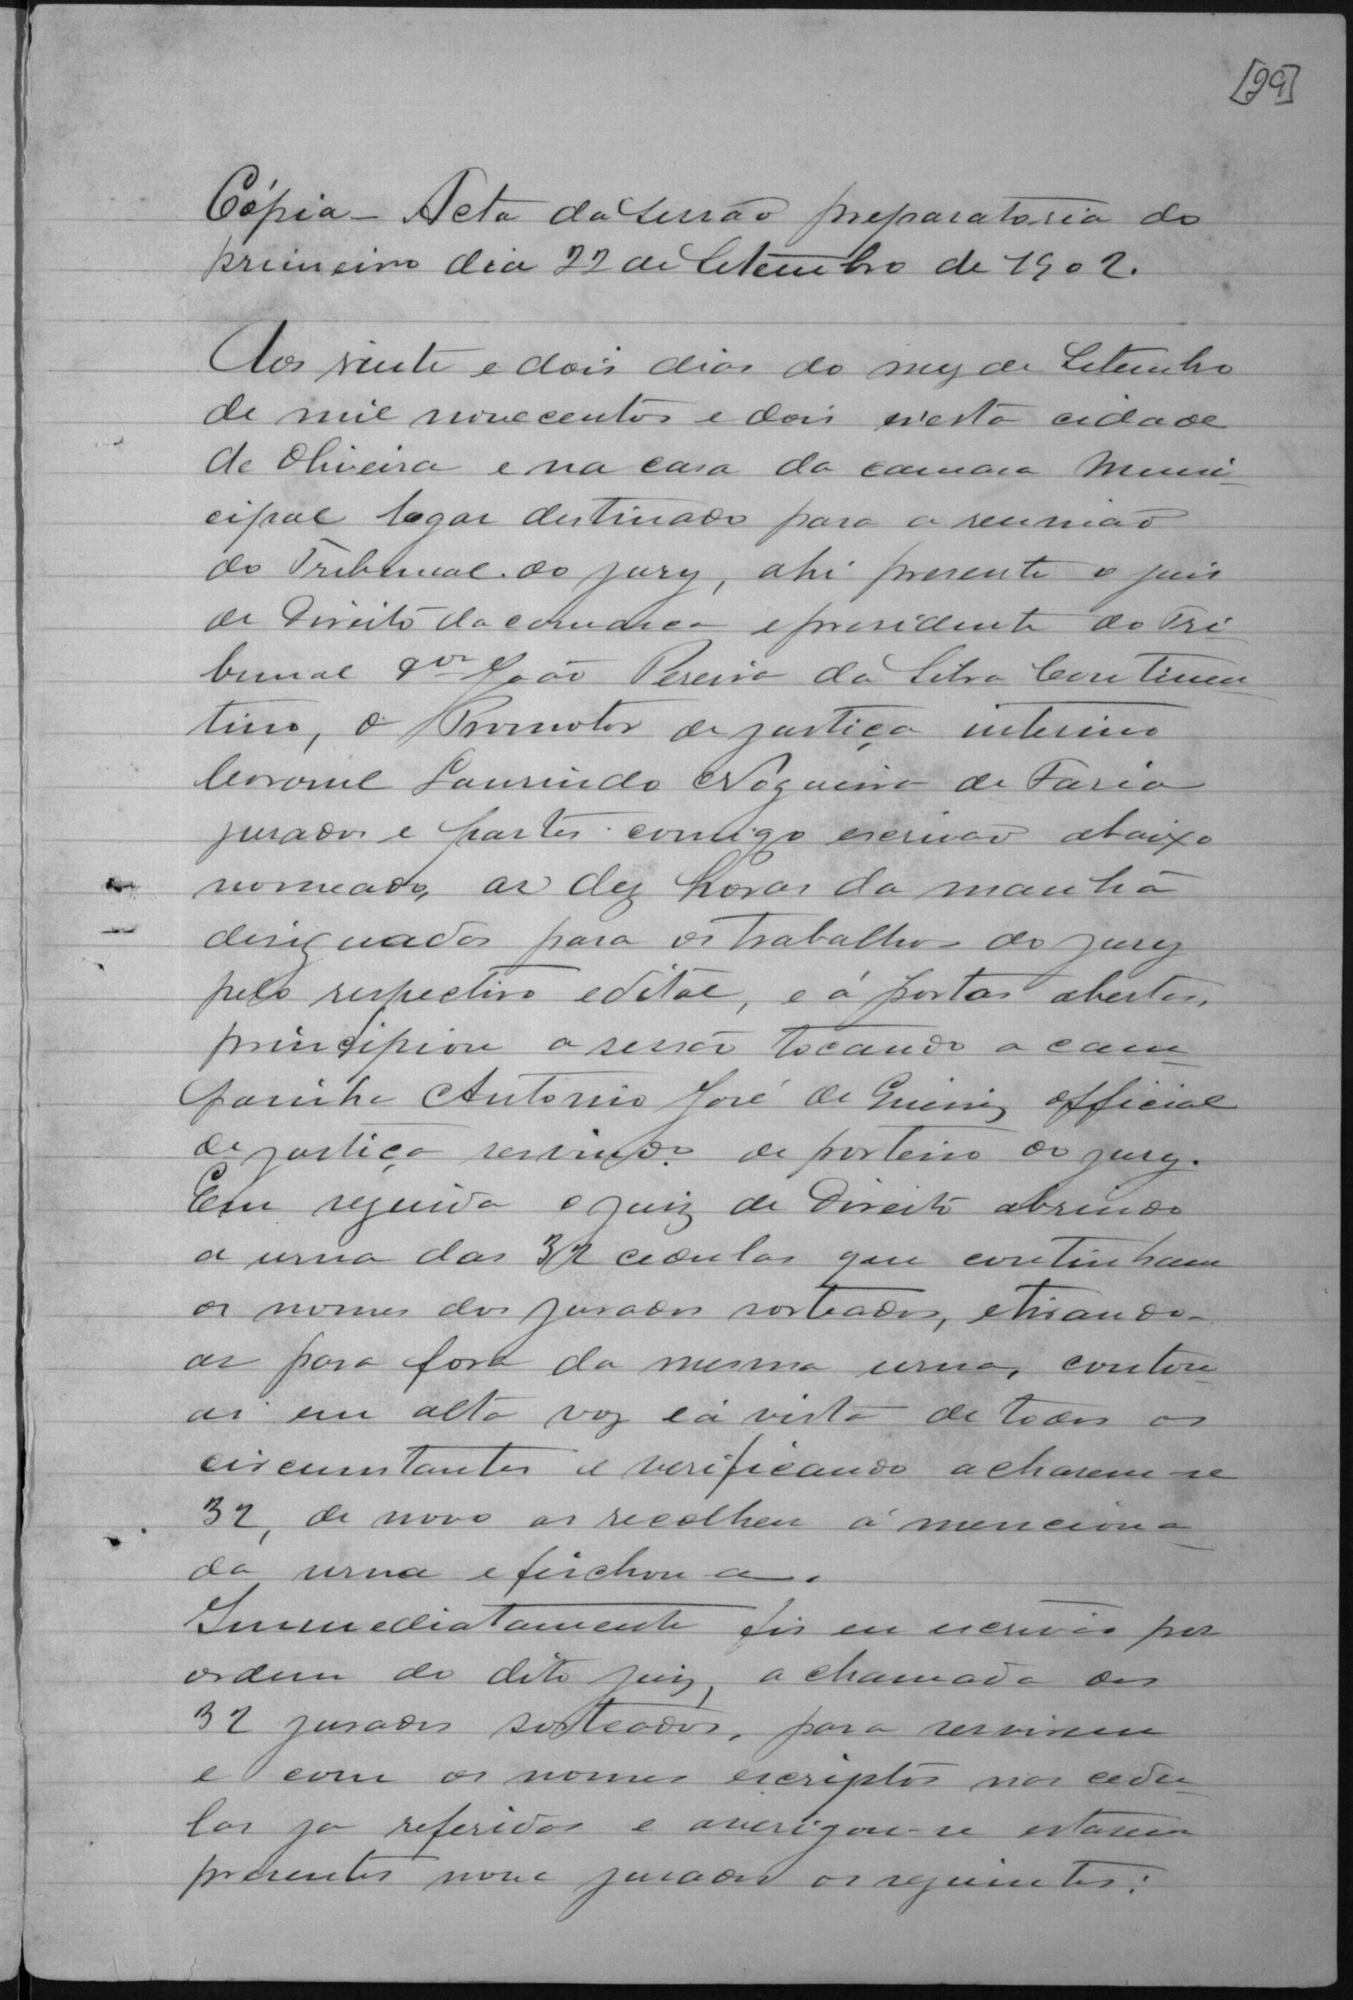 [29]
Cópia - Acta da sessão preparatoria do
primeiro dia 22 de Setembro de 1902.
Aos vinte e dois dias do mez de Setembro
de mil novecentos e dois n'esta cidade
de Oliveira e na casa da camara Muni-
cipal logar destinado para a reunião
do Tribunal do jury, ahi presente o juis
de Direito da comarca e presidente do Tri-
bunal João Pereira da Silva Continen
tino, o Promotor de justiça interino
Coronel Laurindo Nogueira de Faria
jurados e partes comigo escrivão abaixo
nomeado, as dez horas da manhã
designados para os trabalhos do jury
pelo respectivo edital, e á portas abertas,
principiou a sessão tocando a cam-
painha Antonio José de officiale
de justiça servindo de porteiro do jury.
Em seguida o juiz de Direito abrindo
a urna das 32 cedulas que continham
os nomes dos jurados sorteados, e tirando-
as para fora da mesma urna, contou-
as em alta voz e á vista de todos os
circumstantes e verificando acharem-se
32, de novo as recolheu á menciona-
da urna e fechou a.
Immediatamente fis eu escrivão por
ordem do dito juiz, a chamada dos
32 jurados sorteados, para servirem
e com os nomes escriptos nas cedu-
las ja referidas e averigou-se estarem
presentes nove jurados os seguintes: